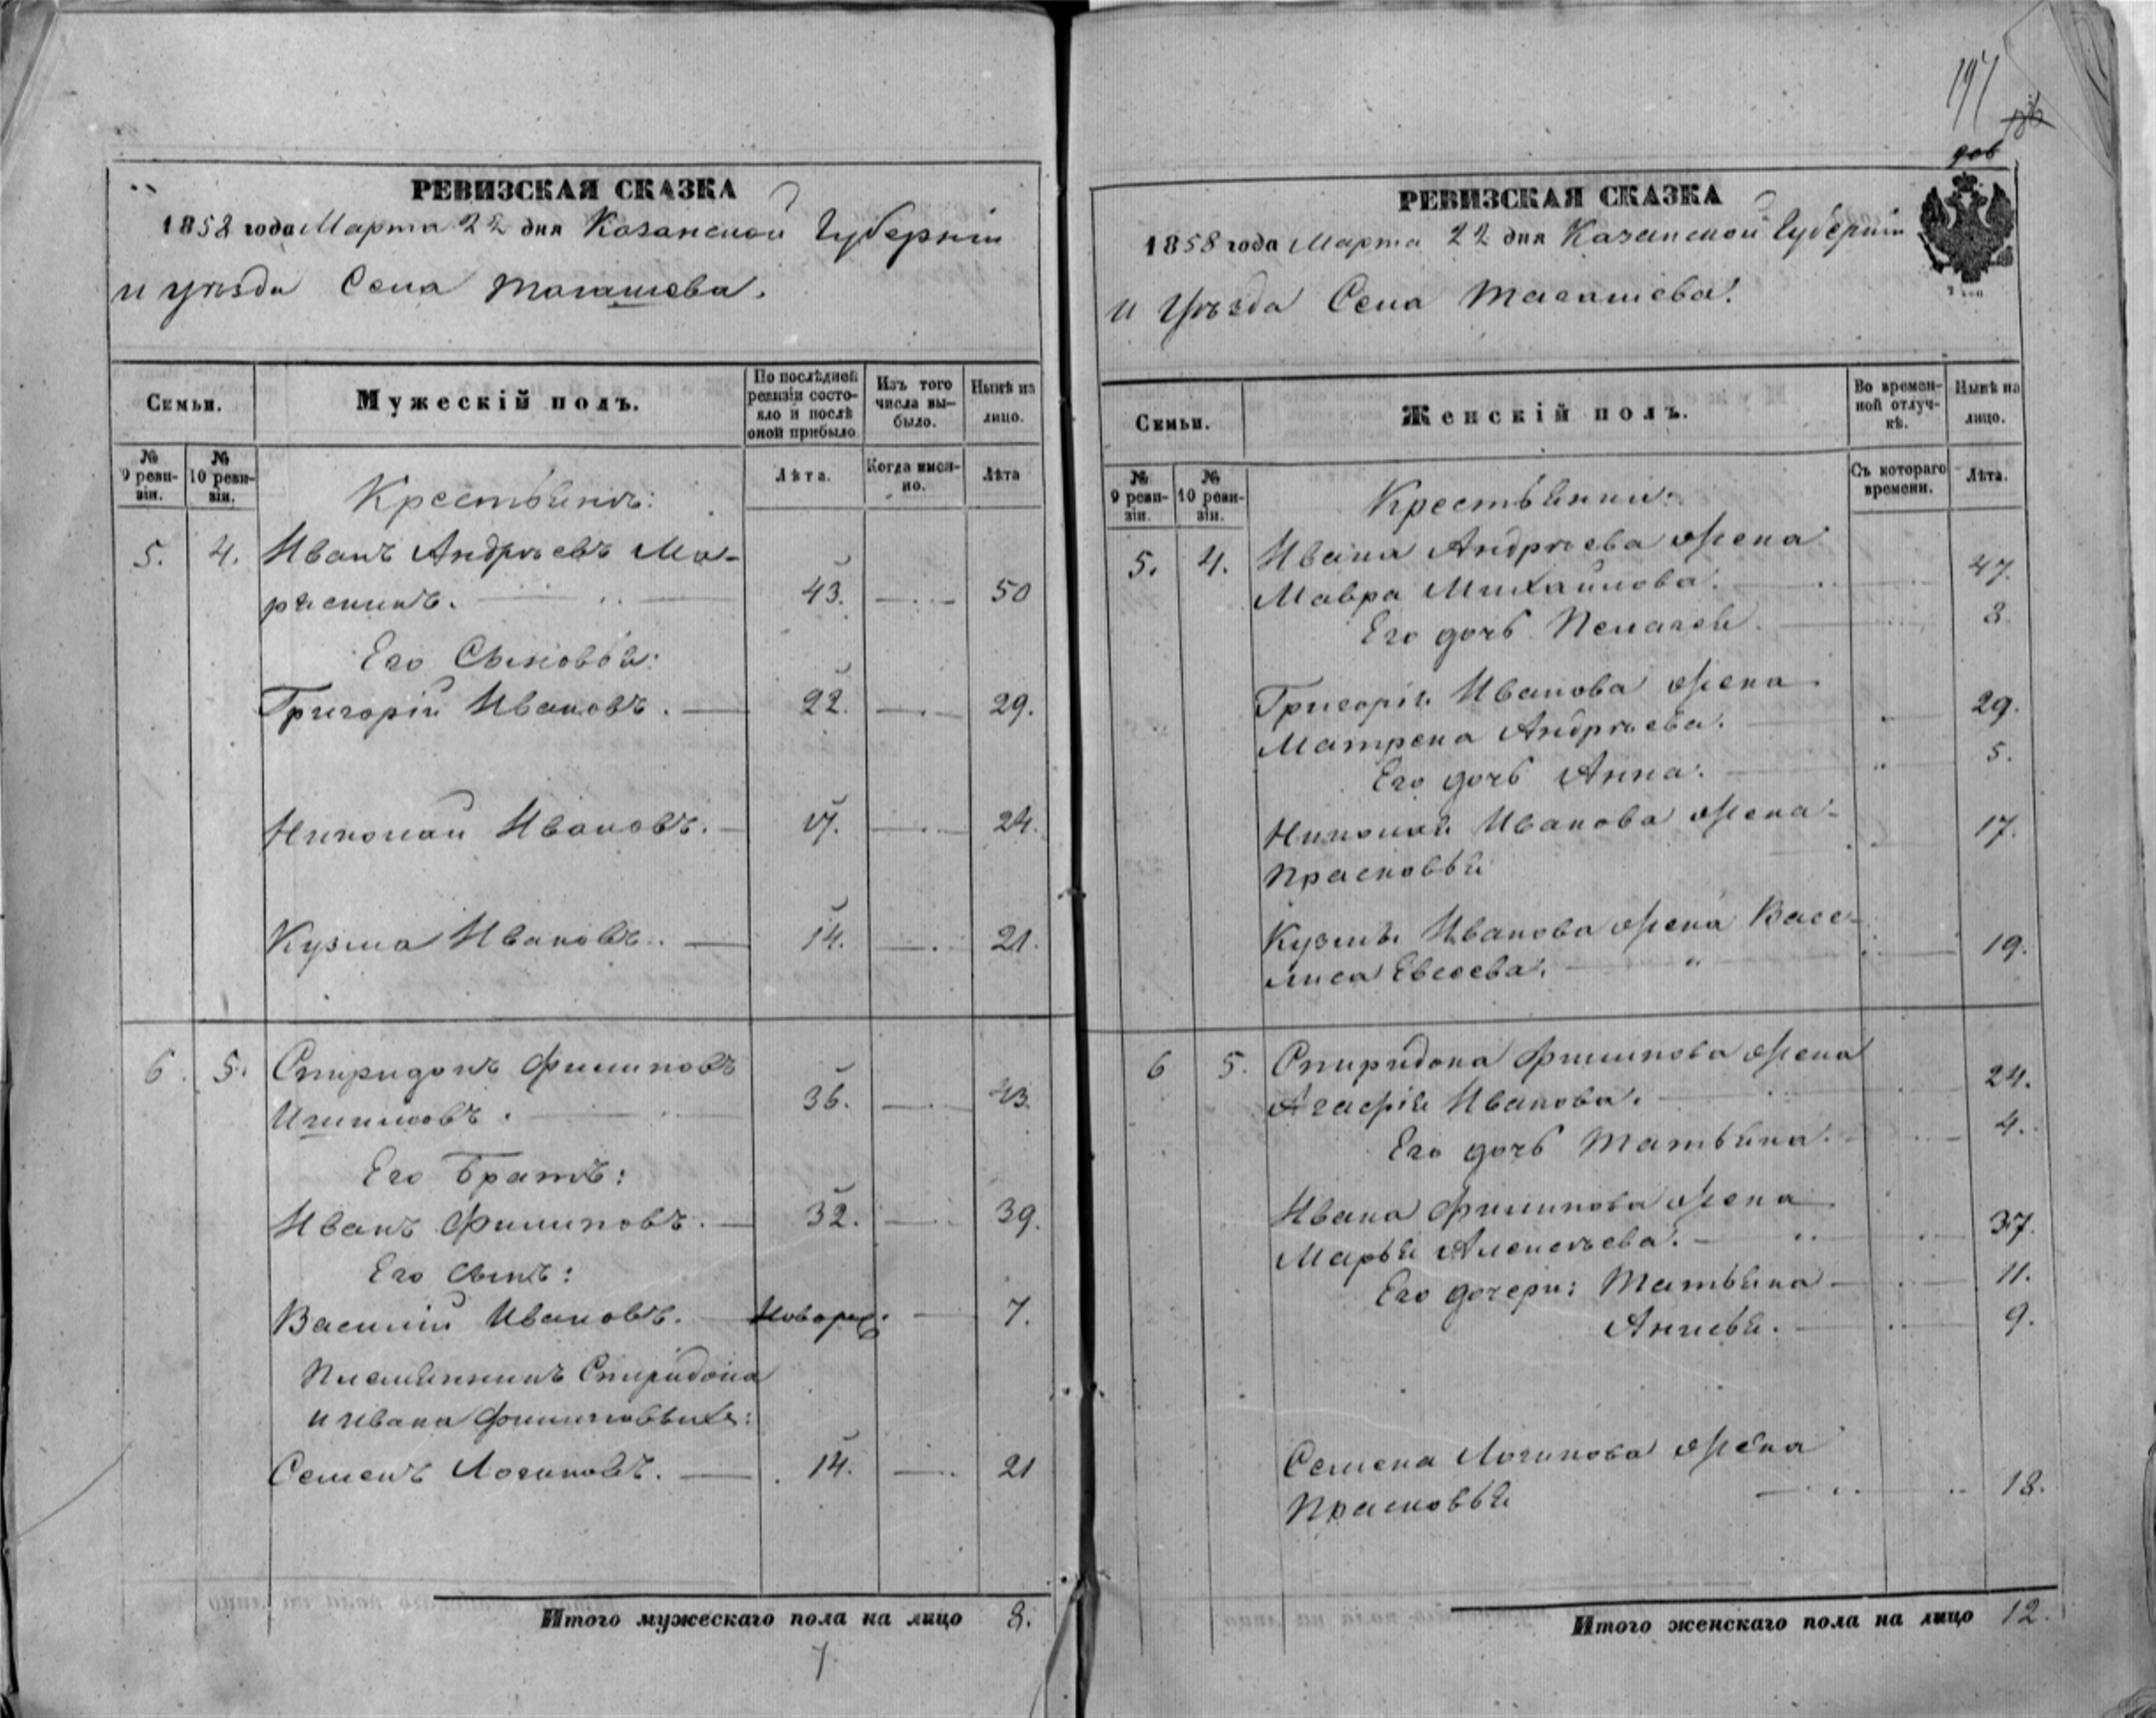 РЕВИЗСКАЯ СКАЗКА
1858 года Марта 22 дня Казанской Губерніи
и уѣзда Села Тагашева.
Семьи.
Мужескій полъ.
По послѣдней ревизіи состояло и послѣ оной прибыло
Изъ того числа выбыло.
Нынѣ на лицо.
№ 9 ревизіи.
№ 10 ревизіи.
Лѣта.
Когда именно.
Лѣта
Крестьянъ:
5. 4. Иванъ Андрѣевъ Ма-
43. 50
Его Сыновья:
Григорій Ивановъ. 22. 29.
Николай Ивановъ. 17. 24.
Кузма Ивановъ. 14. 21.
6. 5. Спиридонъ Филиповъ
36. 43.
Его Братъ:
Иванъ Филиповъ. 32. 39.
Его сынъ:
Василій Ивановъ. Новорож. 7.
Племянникъ Спиридона
и Ивана Филиповыхъ:
Семенъ Логиновъ. 14. 21
Итого мужескаго пола на лицо 8.
7
197
РЕВИЗСКАЯ СКАЗКА
1858 года Марта 22 дня Казанской Губерніи
и Уѣзда Села Тагашева.
Семьи.
Женскій полъ.
Во временной отлучкѣ.
Нынѣ на лицо.
№ 9 ревизіи.
№ 10 ревизіи.
Съ котораго времени.
Лѣта.
Крестьянки:
5. 4. Ивана Андрѣева жена
Мавра Михайлова. 47.
Его дочь Пелагея. 8.
Григорія Иванова жена
Матрена Андрѣева. 29.
Его дочь Анна. 5.
Николая Иванова жена
Прасковья 17.
Кузмы Иванова жена Васе-
лиса Евсеева. 19.
6 5. Спиридона Филипова жена
Агафія Иванова. 24.
Его дочь Татьяна. 4.
Ивана Филипова жена
Марья Алексѣева. 37.
Его дочери: Татьяна 11.
9.
Семена Логинова жена
Прасковья 18.
Итого женскаго пола на лицо 12.